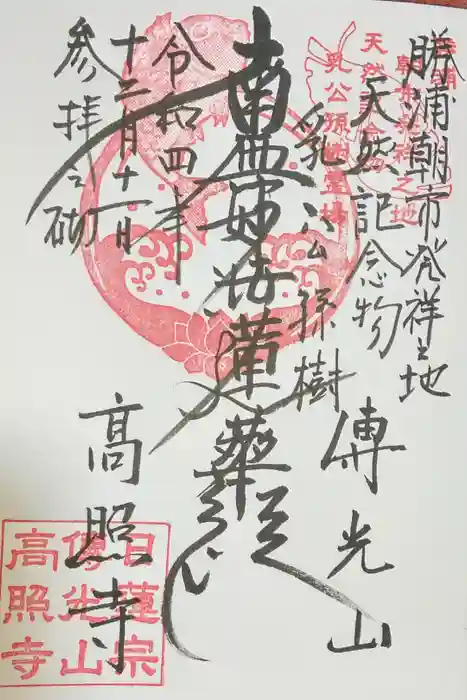 勝浦朝市発祥之地
天然記念物
乳公孫樹
傳光山
南無妙法蓮華経
令和四年
十二月十一日
参拝之砌
高照寺
日蓮宗
傳光山
高照寺